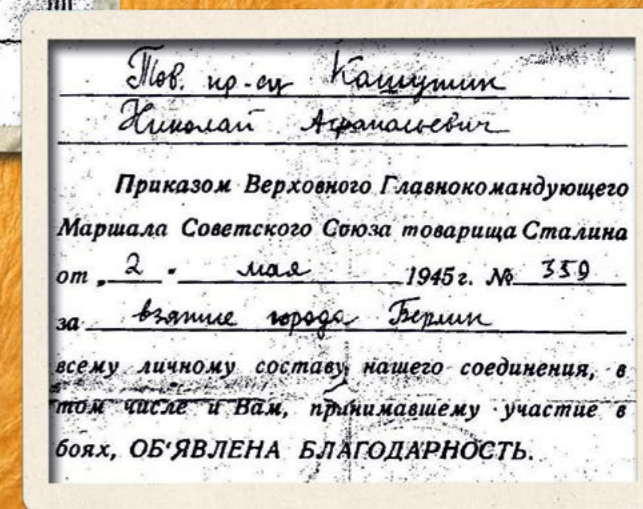 Тов. кр-ец Кашутин
Николай Афанасьевич
Приказом Верховного Главнокомандующего
Маршала Советского Союза товарища Сталина
от „ 2 " мая 1945 г. № 359
за взятие города Берлин
всему личному составу нашего соединения, в
том числе и Вам, принимавшему участие в
боях, ОБ'ЯВЛЕНА БЛАГОДАРНОСТЬ.